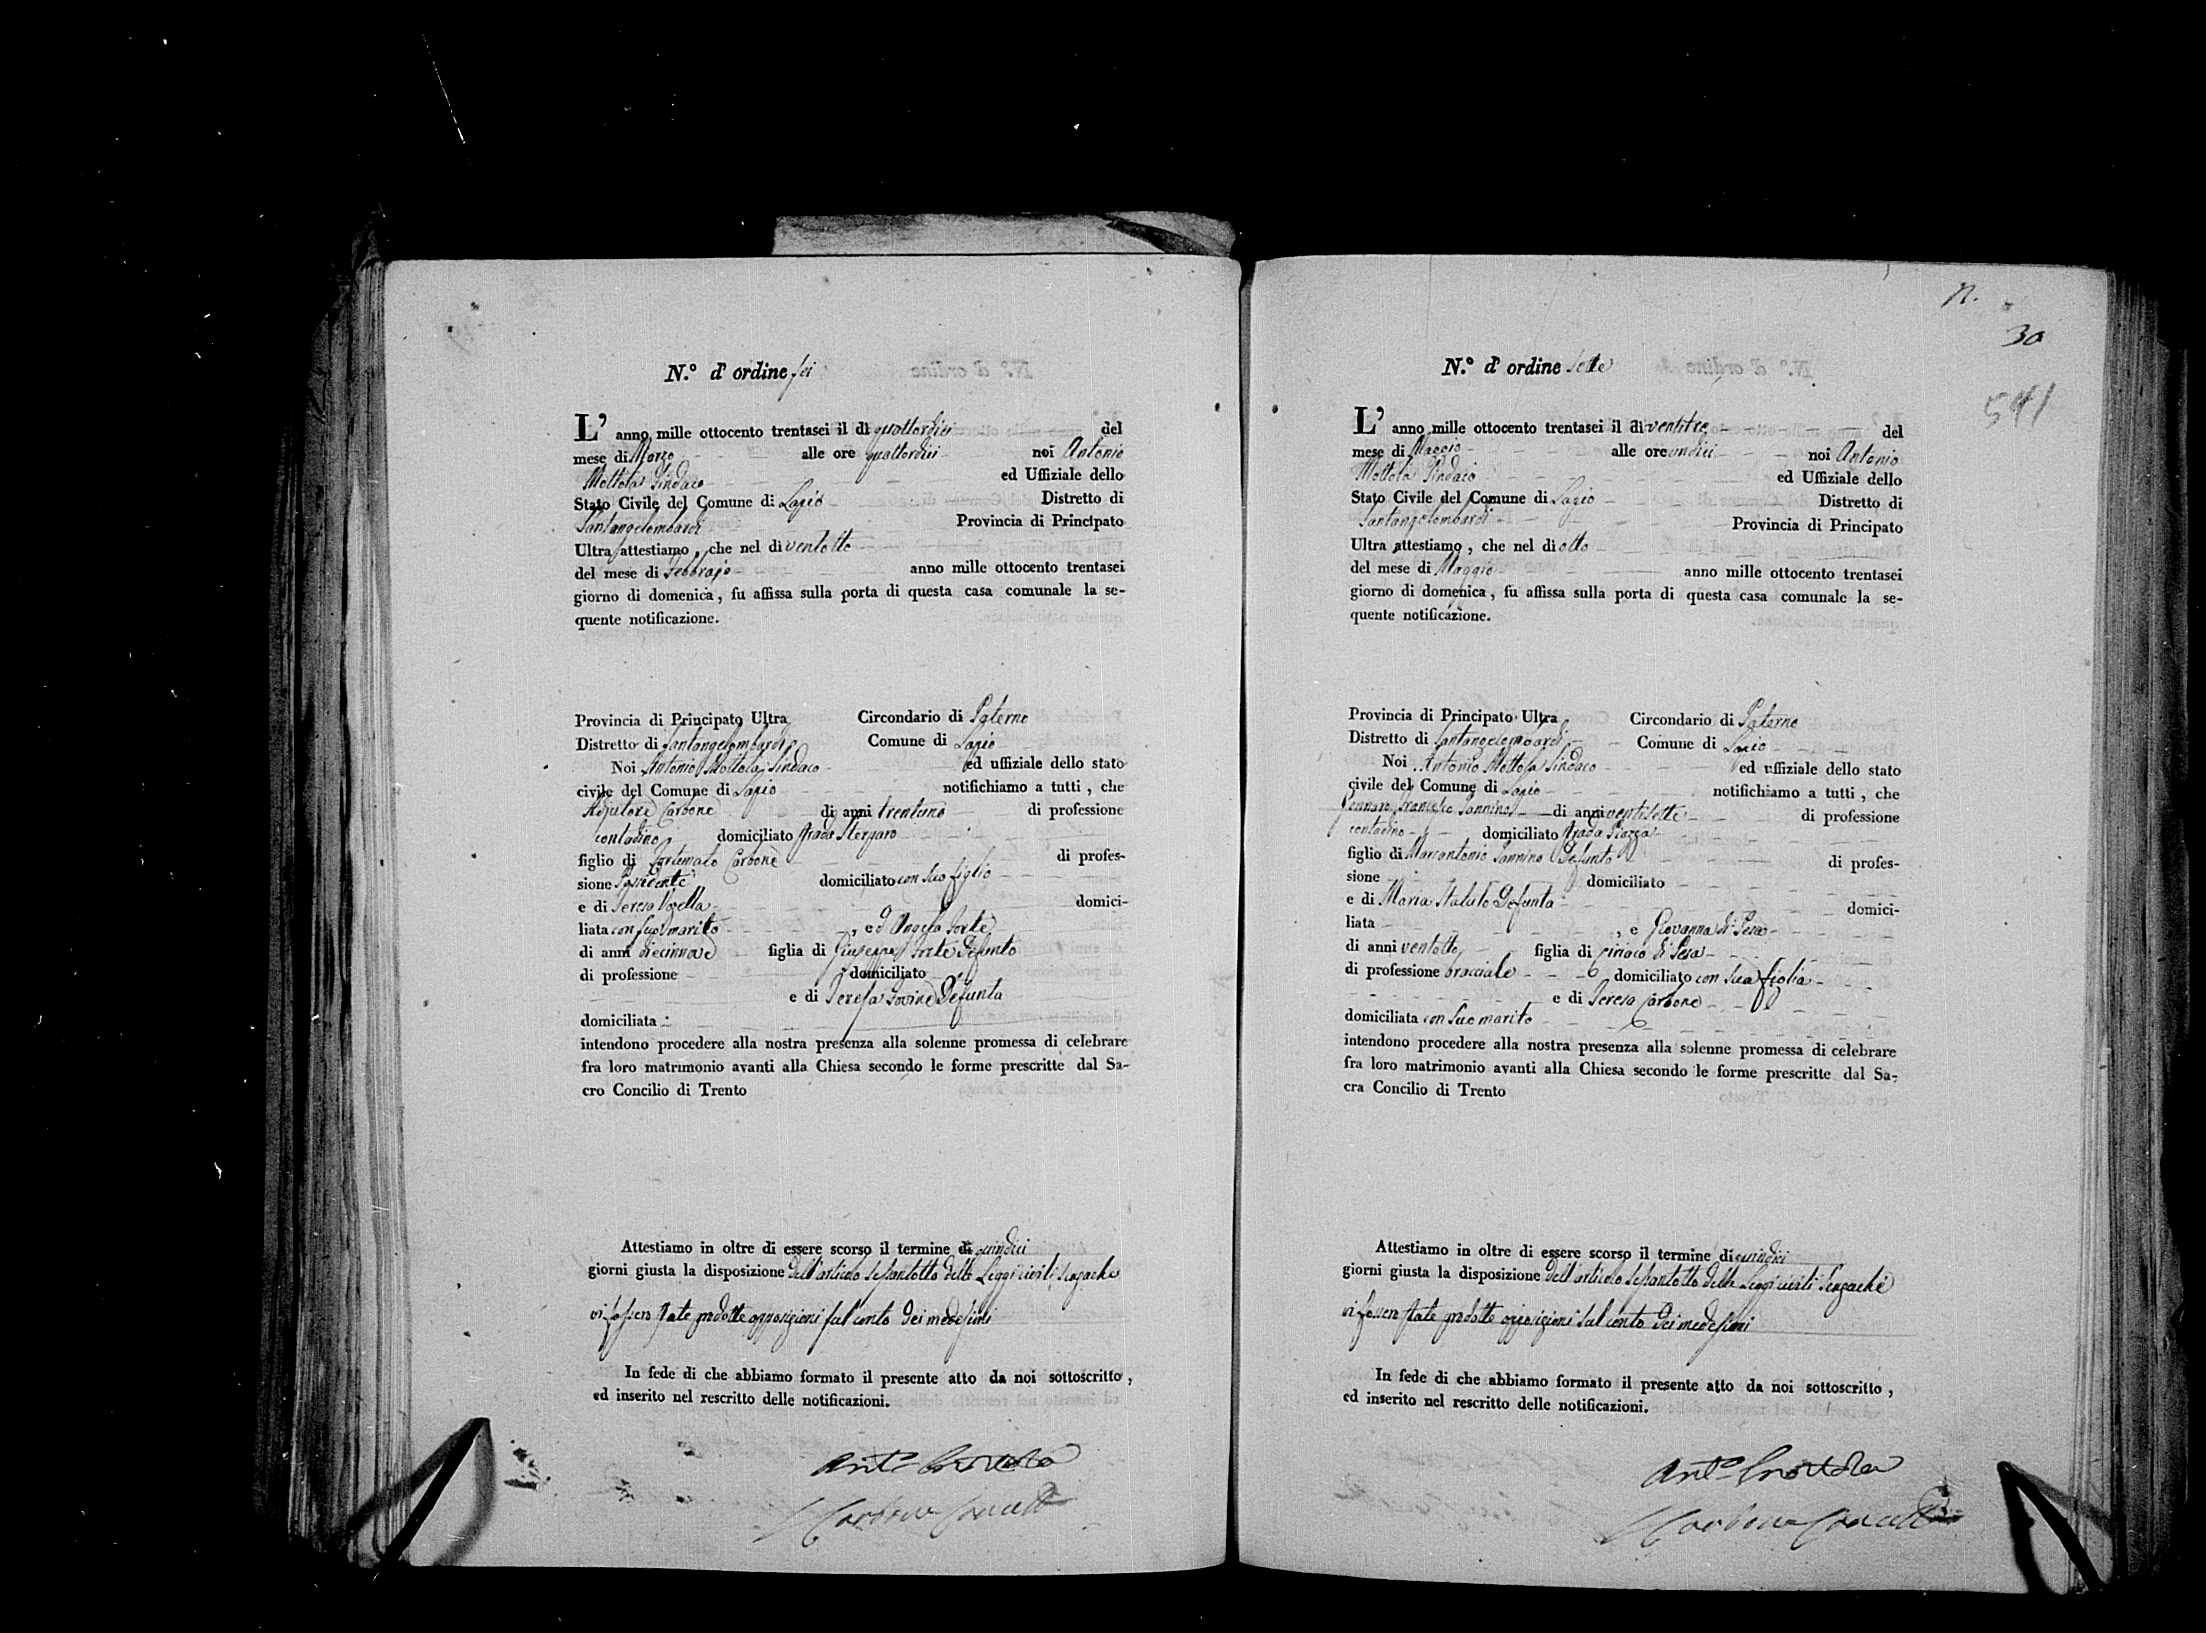 N.° d' ordine sei
L' anno mille ottocento trentasei il dì quattordici del
mese di Marzo alle ore quattordici noi Antonio
Mottola Sindaco ed Uffiziale dello
Stato Civile del Comune di Lapio Distretto di
Santangelombardi Provincia di Principato
Ultra attestiamo, che nel dì ventotto
del mese di Febbrajo anno mille ottocento trentasei
giorno di domenica, fu affissa sulla porta di questa casa comunale la se-
quente notificazione.
Provincia di Principato Ultra Circondario di Paterno
Distretto di Santangelombardi Comune di Lapio
Noi Antonio Mottola Sindaco ed uffiziale dello stato
civile del Comune di Lapio notifichiamo a tutti, che
Adjutore Carbone di anni trentuno di professione
contadino domiciliato strada
figlio di Fortunato Carbone di profes-
sione Possidente domiciliato con suo figlio
e di Teresa domici-
liata con suo marito, ed Angela Forte
di anni diecinnove figlia di Giuseppe Forte Defunto
di professione domiciliato
e di Teresa Iovine Defunta
domiciliata
intendono procedere alla nostra presenza alla solenne promessa di celebrare
fra loro matrimonio avanti alla Chiesa secondo le forme prescritte dal Sa-
cro Concilio di Trento
Attestiamo in oltre di essere scorso il termine di quindici
giorni giusta la disposizione dell'articolo sessantotto delle Leggi civili senzache
vi fossero state prodotte opposizioni sul conto dei medesimi
In fede di che abbiamo formato il presente atto da noi sottoscritto,
ed inserito nel rescritto delle notificazioni.
Ant.o Mottola
Carbone Cancell
N.
30
541
N.° d' ordine sette
L' anno mille ottocento trentasei il dì ventitre del
mese di Maggio alle ore undici noi Antonio
Mottola Sindaco ed Uffiziale dello
Stato Civile del Comune di Lapio Distretto di
Santangelombardi Provincia di Principato
Ultra attestiamo, che nel dì otto
del mese di Maggio anno mille ottocento trentasei
giorno di domenica, fu affissa sulla porta di questa casa comunale la se-
quente notificazione.
Provincia di Principato Ultra Circondario di Paterno
Distretto di Santangelombardi Comune di Lapio
Noi Antonio Mottola Sindaco ed uffiziale dello stato
civile del Comune di Lapio notifichiamo a tutti, che
Gennaro Francesco Iannino di anni ventisette di professione
contadino domiciliato strada Piazza
figlio di Marcantonio Iannino Defunto di profes-
sione domiciliato
e di Maria Statuto Defunta domici-
liata, e Giovanna di Pesa
di anni ventotto figlia di Ciriaco di Pesa
di professione bracciale domiciliato con sua figlia
e di Teresa Carbone
domiciliata con suo marito
intendono procedere alla nostra presenza alla solenne promessa di celebrare
fra loro matrimonio avanti alla Chiesa secondo le forme prescritte dal Sa-
cra Concilio di Trento
Attestiamo in oltre di essere scorso il termine di quindici
giorni giusta la disposizione dell'articolo sessantotto delle Leggi civili senzache
vi fossero state prodotte opposizioni sul conto dei medesimi
In fede di che abbiamo formato il presente atto da noi sottoscritto,
ed inserito nel rescritto delle notificazioni.
Ant.o Mottola
Carbone Cancell